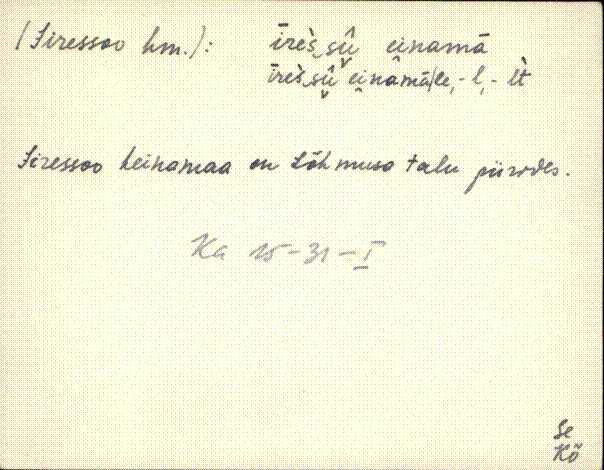 /Iiressoo hm./: īrès‿sū̬̂ einamā
īrès‿sū̬̂ ei̭nàmā|le, -l, -lt̀
Iiressoo heinamaa on Lõhmuse talu piirides.
Ka 15-31-I
Se
Kõ